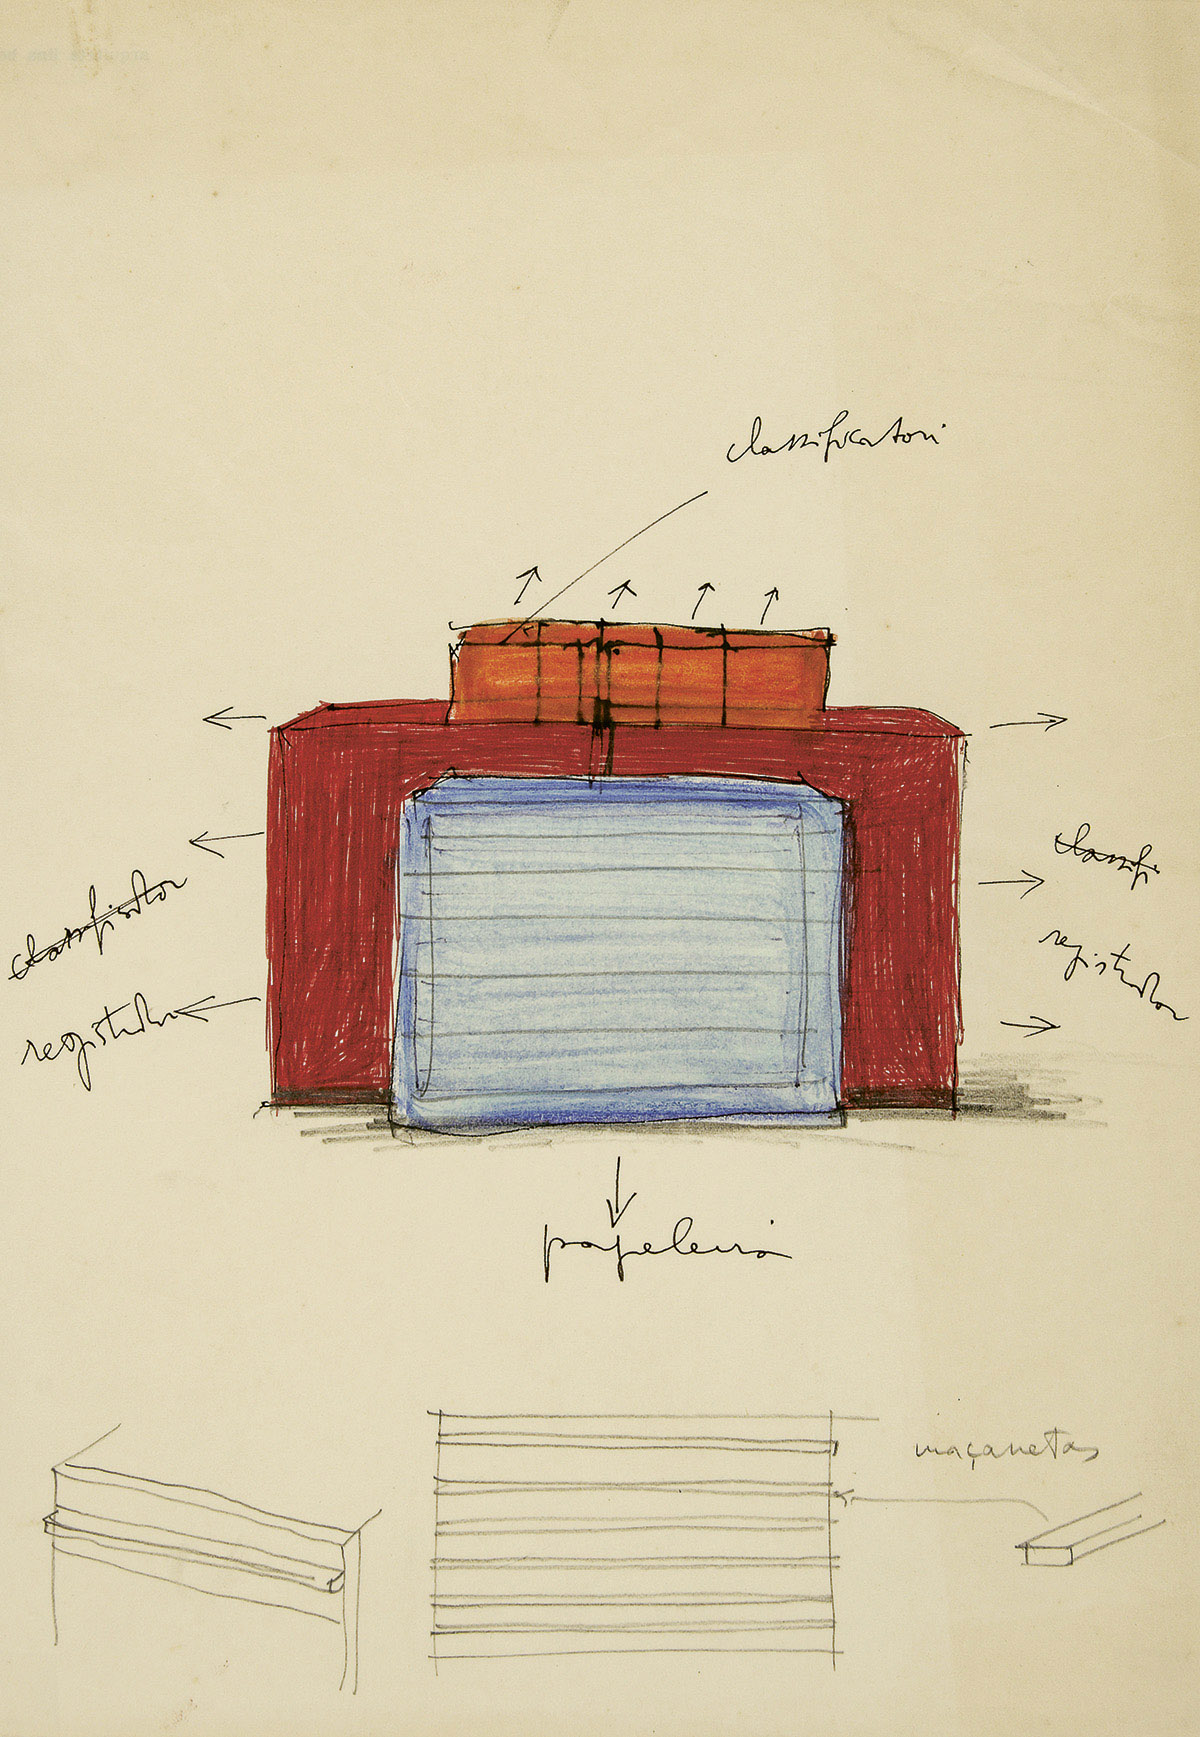 classificatori
classificator
registrador
classifi
registrador
papeleira
maçanetas